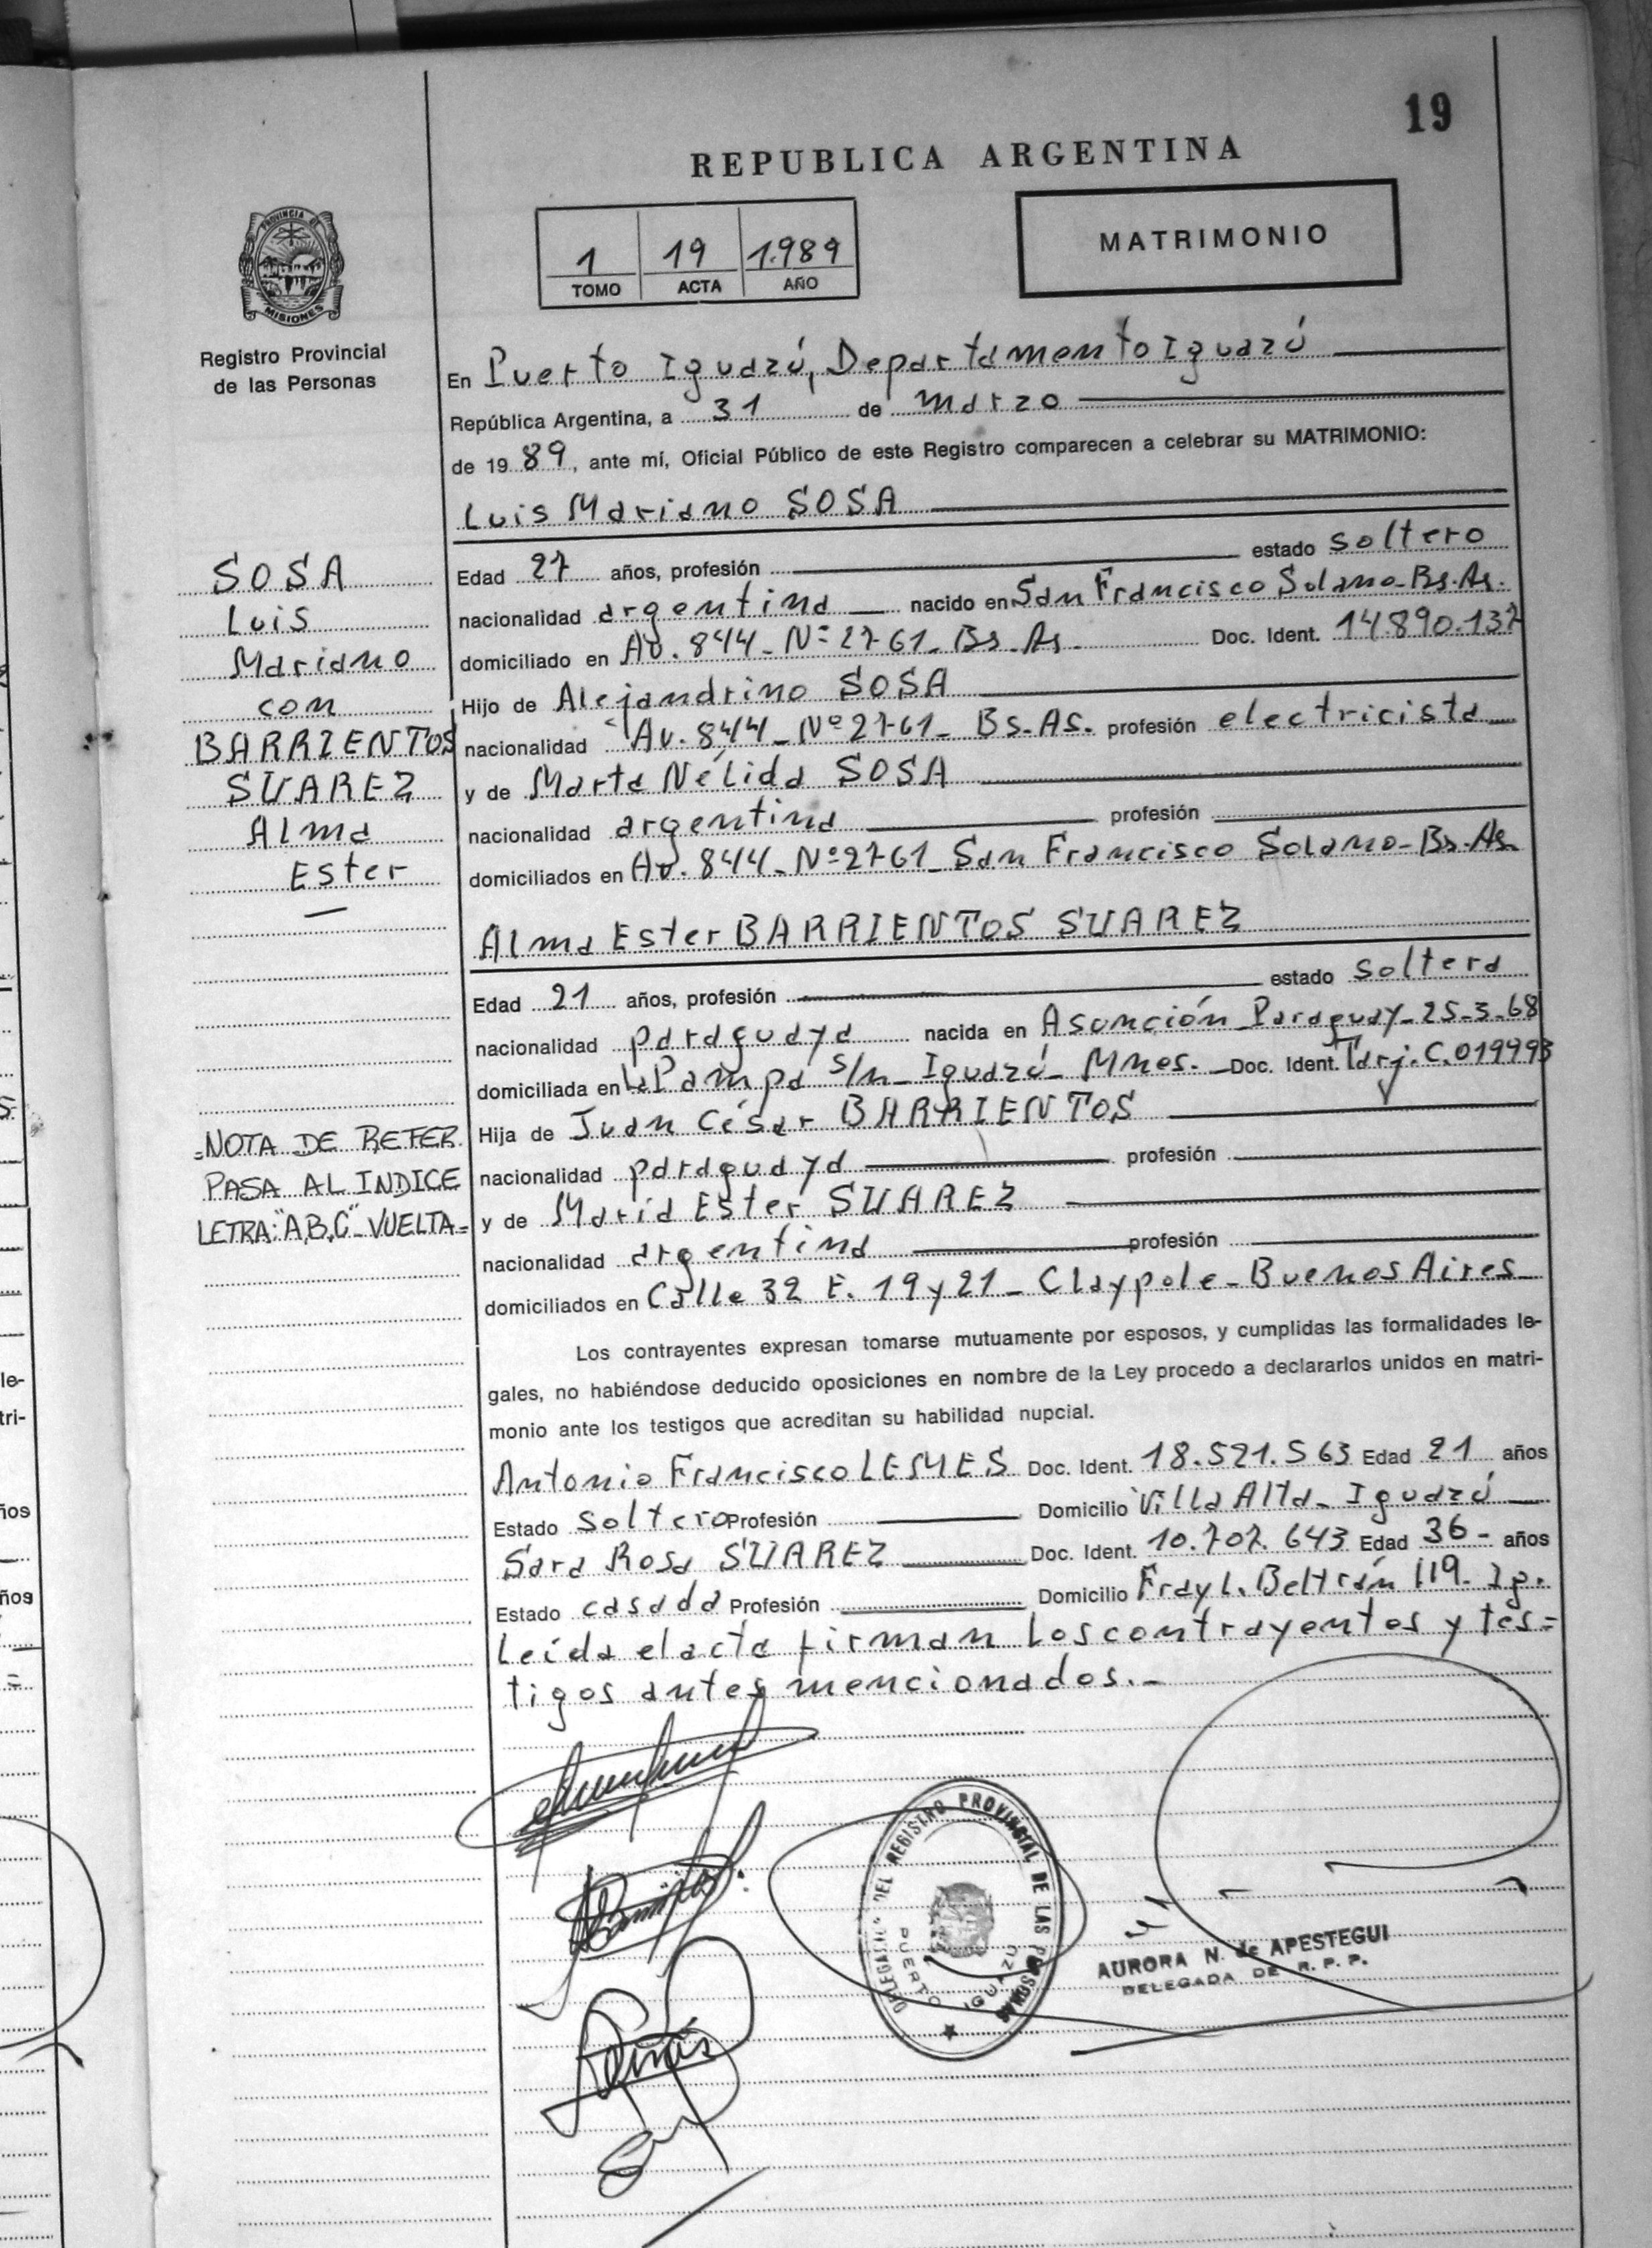 19
REPUBLICA ARGENTINA
PROVINCIA DE
MISIONES
Registro Provincial
de las Personas
1 19 1.989
TOMO ACTA AÑO
MATRIMONIO
En Puerto Iguazú, Departamento Iguazú
República Argentina, a 31 de marzo
de 19 89, ante mí, Oficial Público de este Registro comparecen a celebrar su MATRIMONIO:
Luis Mariano SOSA
Edad 27 años, profesión estado soltero
nacionalidad argentina nacido en San Francisco Solano-Bs.As.
domiciliado en Av. 844-Nº 2761-Bs.As. Doc. Ident. 14.890.137
Hijo de Alejandrino SOSA
nacionalidad Av. 844-Nº2761-Bs.As. profesión electricista
y de Marta Nélida SOSA
nacionalidad argentina profesión
domiciliados en Av. 844-Nº2761-San Francisco Solano-Bs.As.
SOSA
Luis
Mariano
con
BARRIENTOS
SUAREZ
Alma
Ester
Alma Ester BARRIENTOS SUAREZ
Edad 21 años, profesión estado soltera
nacionalidad paraguaya nacida en Asunción Paraguay-25-3-68
domiciliada en La Pampa s/n-Iguazú-Mnes.- Doc. Ident. Tarj.C.019993
Hija de Juan César BARRIENTOS
nacionalidad paraguaya profesión
y de María Ester SUAREZ
nacionalidad argentina profesión
domiciliados en Calle 32 E. 19 y 21-Claypole-Buenos Aires
=NOTA DE REFER.
PASA AL INDICE
LETRA:"A,B,C" VUELTA=
Los contrayentes expresan tomarse mutuamente por esposos, y cumplidas las formalidades le-
gales, no habiéndose deducido oposiciones en nombre de la Ley procedo a declararlos unidos en matri-
monio ante los testigos que acreditan su habilidad nupcial.
Antonio Francisco LEMES Doc. Ident. 18.521.563 Edad 21 años
Estado soltero Profesión Domicilio Villa Alta-Iguazú
Sara Rosa SUAREZ Doc. Ident. 10.707.643 Edad 36- años
Estado casada Profesión Domicilio Fray L. Beltrán 119-Ig.
Leída el acta firman los contrayentes y tes=
tigos antes mencionados.-
DEL REGISTRO PROVINCIAL DE LAS PERSONAS
PUERTO IGUAZU
AURORA N. de APESTEGUI
DELEGADA DE R. P. P.